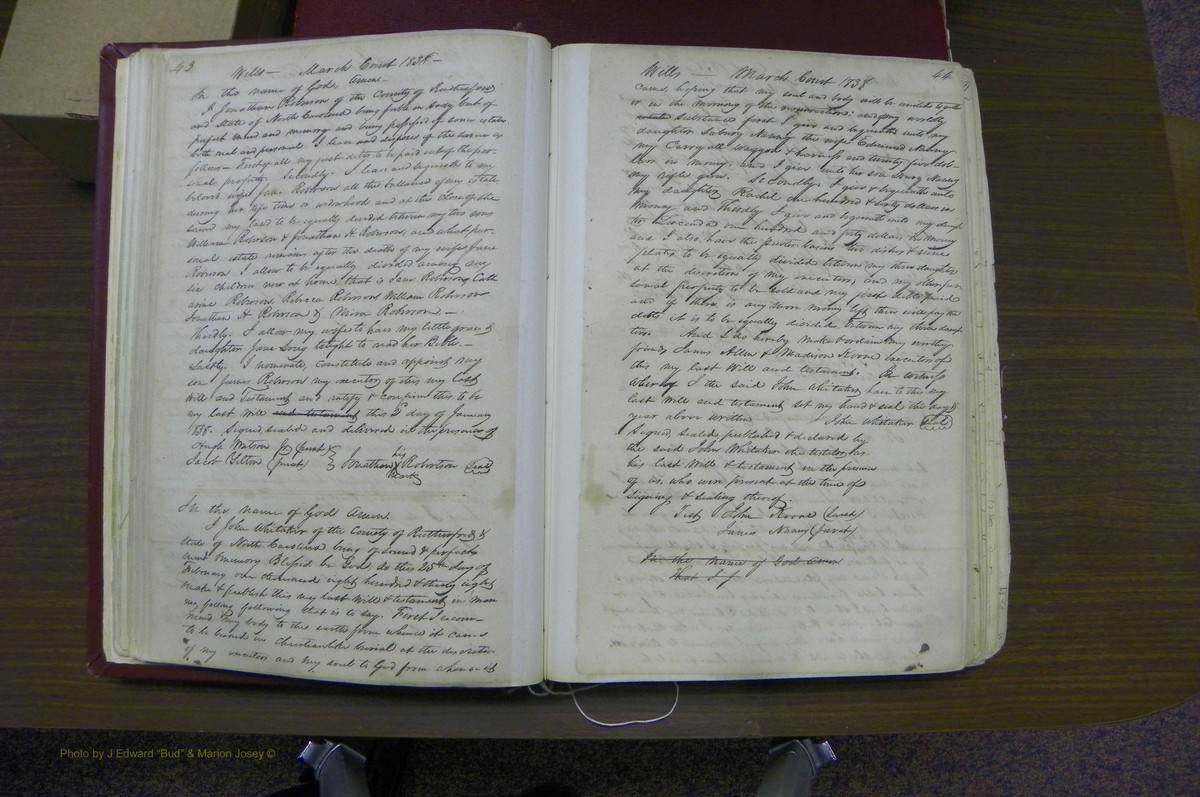 43
Wills — March Court 1838 —
In the name of God, Amen —
I Jonathan Robison of the County of Rutherford
and State of North Carolina being feble in body but of
perfect mind and memory and being possessed of some estate
both real and personal I leave and dispose of the same as
follows. First of all my just debts to be paid out of the per-
sonal property. Secondly. I leave and bequeath to my
beloved wife Jane Robison all the ballance of my estate
during her life time or widowhood and at the close of the
same my land to be equally divided between my two sons
William Robison & Jonathan H. Robison, and what per-
sonal estate remains after the death of my wife Jane
Robison I allow to be equally divided among my
six children now at home, that is Jane Robison, Cath
arine Robison, Rebeca Robison, William Robison
Jonathan H Robison & Mira Robison —
Thirdly. I allow my wife to have my little grand
daughter Jane taught to read her Bible. —
Lastly. I nominate, constitute and appoint my
son James Robison my executor of this my last
Will and Testament and ratify & confirm this to be
my last Will and testament this 2d day of January
1838. Signed, sealed and delivered in the presence of
Hugh Watson (Jurat)
Jacob Bilton (Jurat) Jonathan his X mark Robertson (Seal)
In the name of God Amen
I John Whitaker of the County of Rutherford &
State of North Carolina being of sound & perfect
mind & memory Blessed be God, do this 25th day of
February one thousand eight hundred & thirty eight
make & publish this my last Will & testament in man
ner following that is to say. First I recom-
mend my body to the earth from whence it came
to be buried in Christianlike burial at the discretion
of my executors and my soul to God from whom it
44
Wills — March Court 1838
came, hoping that my soul and body will be united together
in the morning of the resurrection: worldly
substance first I give and bequeath unto my
daughter Nanny the wife Edmund Nanny
my Carryall waggon & harness and twenty five dol-
lars in money; and I give unto her son Nanny
my rifle gun. Secondly. I give & bequeath unto
my daughter Rachel one hundred & fifty dollars in
money and Thirdly I give and bequeath unto my daugh
ter one hundred and fifty dollars in money
and I also have the pewter basins two dishes & nine
plates to be equally divided between my three daughters
at the discretion of my executors, and my other per
sonal property to be sold and my just debts paid
and if there is any more money left than will pay the
debts it is to be equally divided between my three daugh
ters. And I do hereby make & ordain my worthy
friends James Allen & Madison Koone executors of
this my last Will and testament. In witness
whereof I the said John Whitaker have to this my
last Will and testament set my hand & seal the day &
year above written John Whitaker (Seal)
Signed, sealed, published & declared by
the said John Whitaker the testator as
his last Will & testament in the presence
of us, who were present at the time of
signing & sealing thereof.
Test John Koone (Jurat)
James Nanny (Jurat)
In the name of God Amen
that I J
Photo by J Edward "Bud" & Marion Josey ©